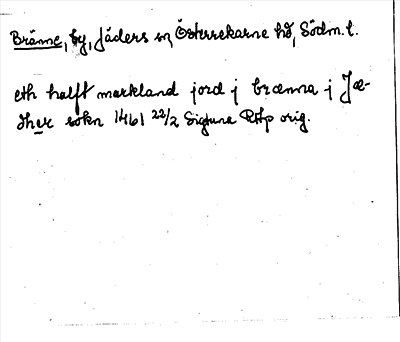 Bränne, by, Jäders sn, Österrekarne hd, Södm. l.
eth halft markland jord j brænna j Jæ-
dher sokn 1461 22/2 Sigtuna RAp orig.